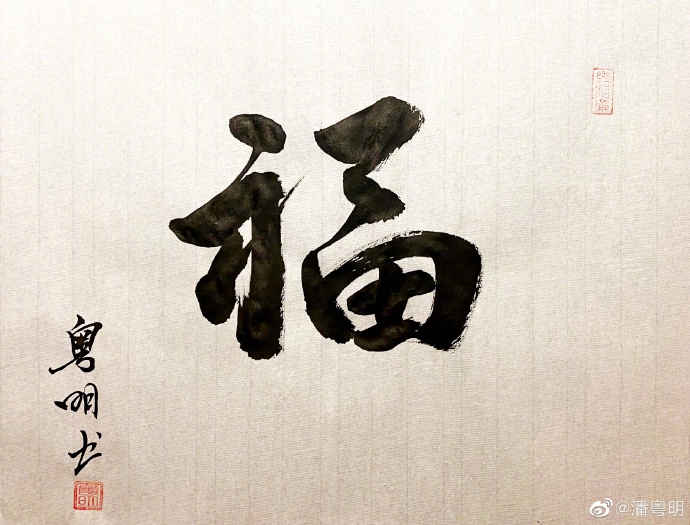 福
粤明书
@潘粤明